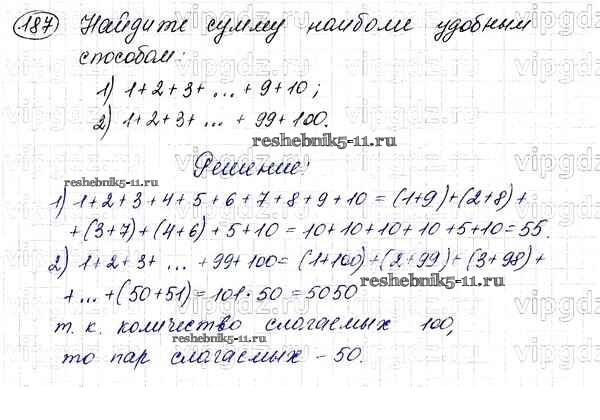 187 Найдите сумму наиболе удобным
способом:
1) 1+2+3+ ... +9+10;
2) 1+2+3+ ... +99+100.
reshebnik5-11.ru
Решение:
reshebnik5-11.ru
1) 1+2+3+4+5+6+7+8+9+10=(1+9)+(2+8)+
+(3+7)+(4+6)+5+10=10+10+10+10+5+10=55.
2) 1+2+3+ ... +99+100=(1+100)+(2+99)+(3+98)+
reshebnik5-11.ru
+...+(50+51)=101·50=5050
т. к. количество слагаемых 100,
reshebnik5-11.ru
то пар слагаемых – 50.